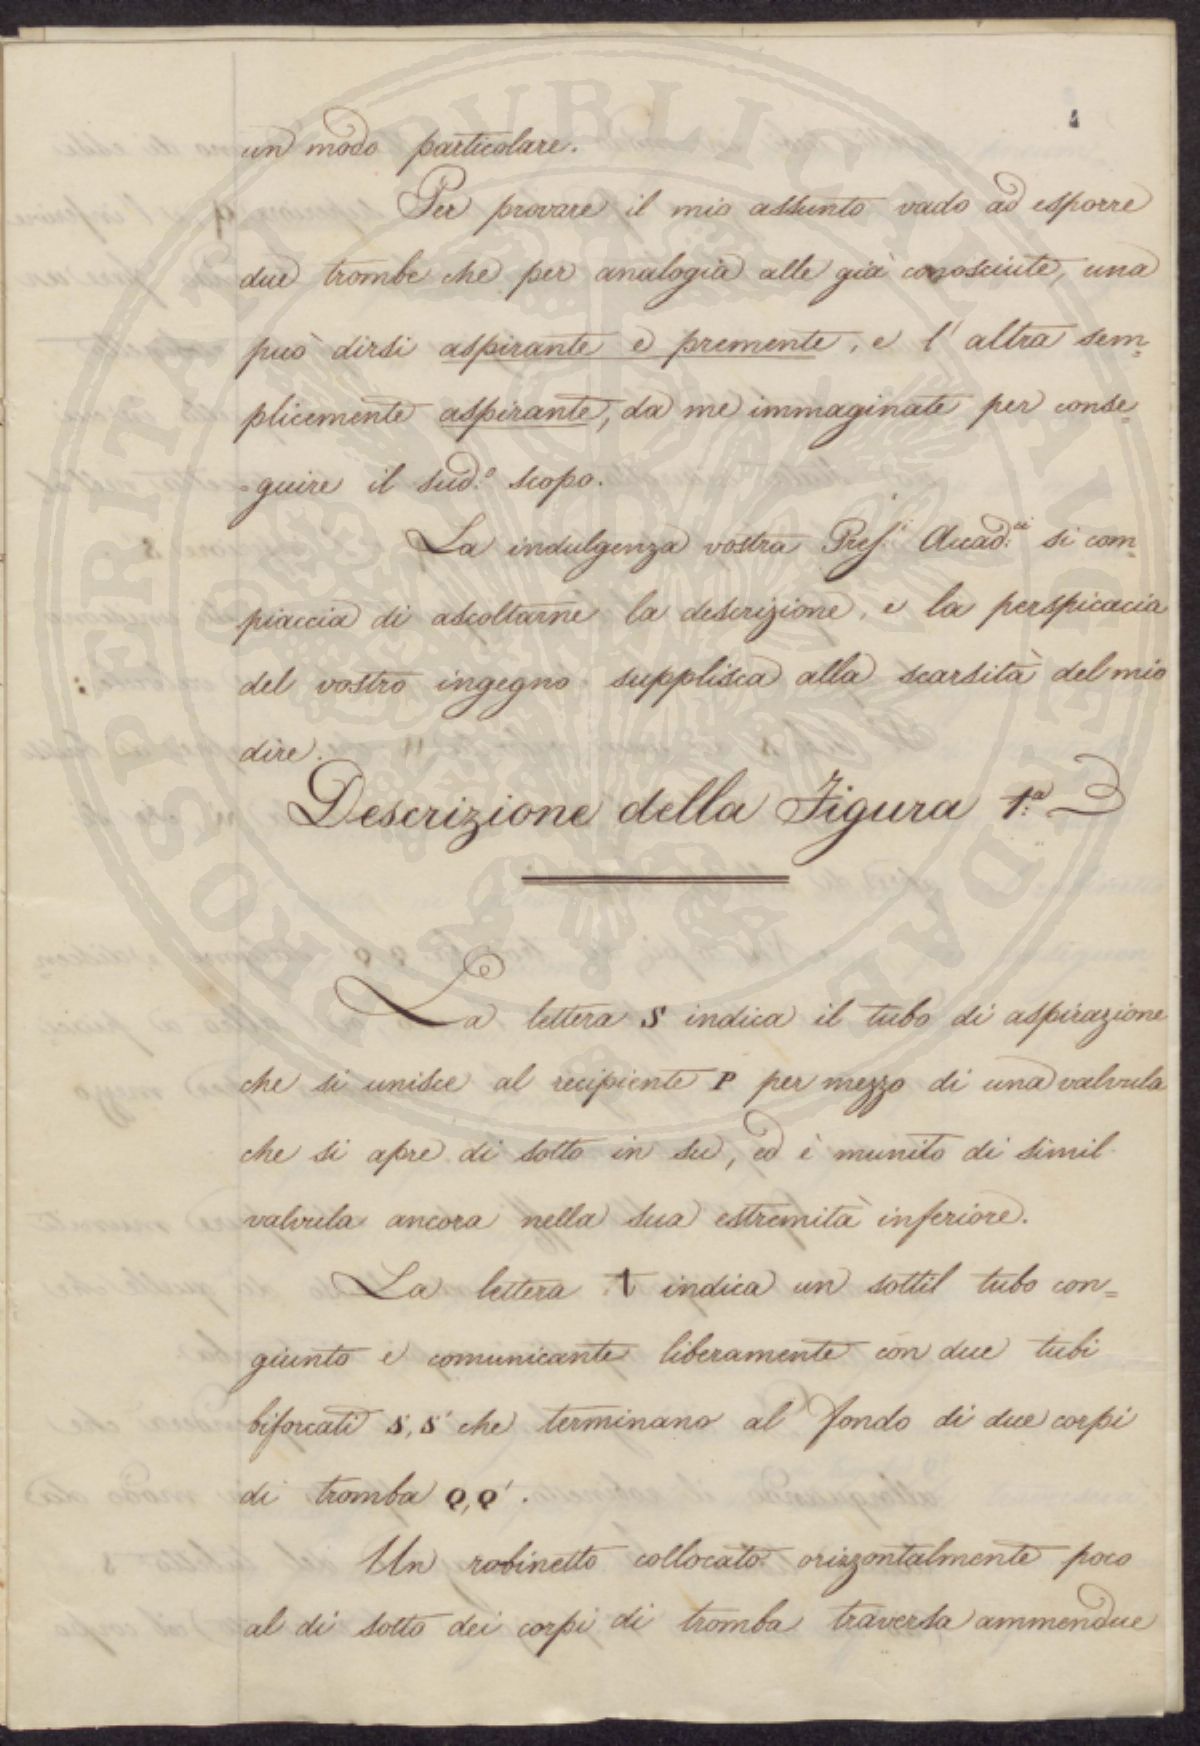 4
un modo particolare.
Per provare il mio assunto vado ad esporre
due trombe che per analogia alle già conosciute, una
può dirsi aspirante e premente, e l'altra sem=
plicemente aspirante, da me immaginate per conse=
=guire il sud.º scopo.
La indulgenza vostra Pref.i Accad.ci si com=
piaccia di ascoltarne la descrizione, e la perspicacia
del vostro ingegno supplisca alla scarsità del mio
dire.
Descrizione della Figura 1.ª
La lettera S indica il tubo di aspirazione
che si unisce al recipiente P per mezzo di una valvula
che si apre di sotto in su, ed è munito di simil
valvula ancora nella sua estremità inferiore.
La lettera indica un sottil tubo con=
giunto e comunicante liberamente con due tubi
biforcati S, S' che terminano al fondo di due corpi
di tromba Q, Q'.
Un robinetto collocato orizzontalmente poco
al di sotto dei corpi di tromba traversa ammendue
PROSPERITATI PUBLICAE AUGENDAE